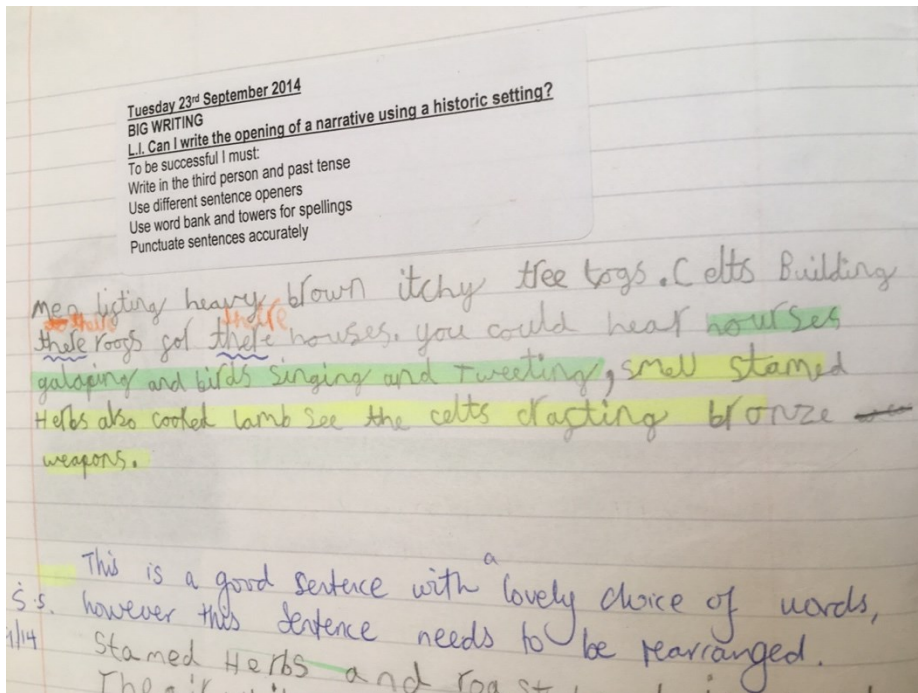 Tuesday 23rd September 2014
BIG WRITING
L.I. Can I write the opening of a narrative using a historic setting?
To be successful I must:
Write in the third person and past tense
Use different sentence openers
Use word bank and towers for spellings
Punctuate sentences accurately
men listing heavy brown itchy tree togs. Celts Building
there roofs for there houses. you could hear hourses
galaping and birds singing and tweeting, smell stamed
Herbs also cooked lamb see the celts crafting bronze
weapons.
This is a good sentence with a lovely choice of words,
however this sentence needs to be rearranged.
Stamed Herbs and roast